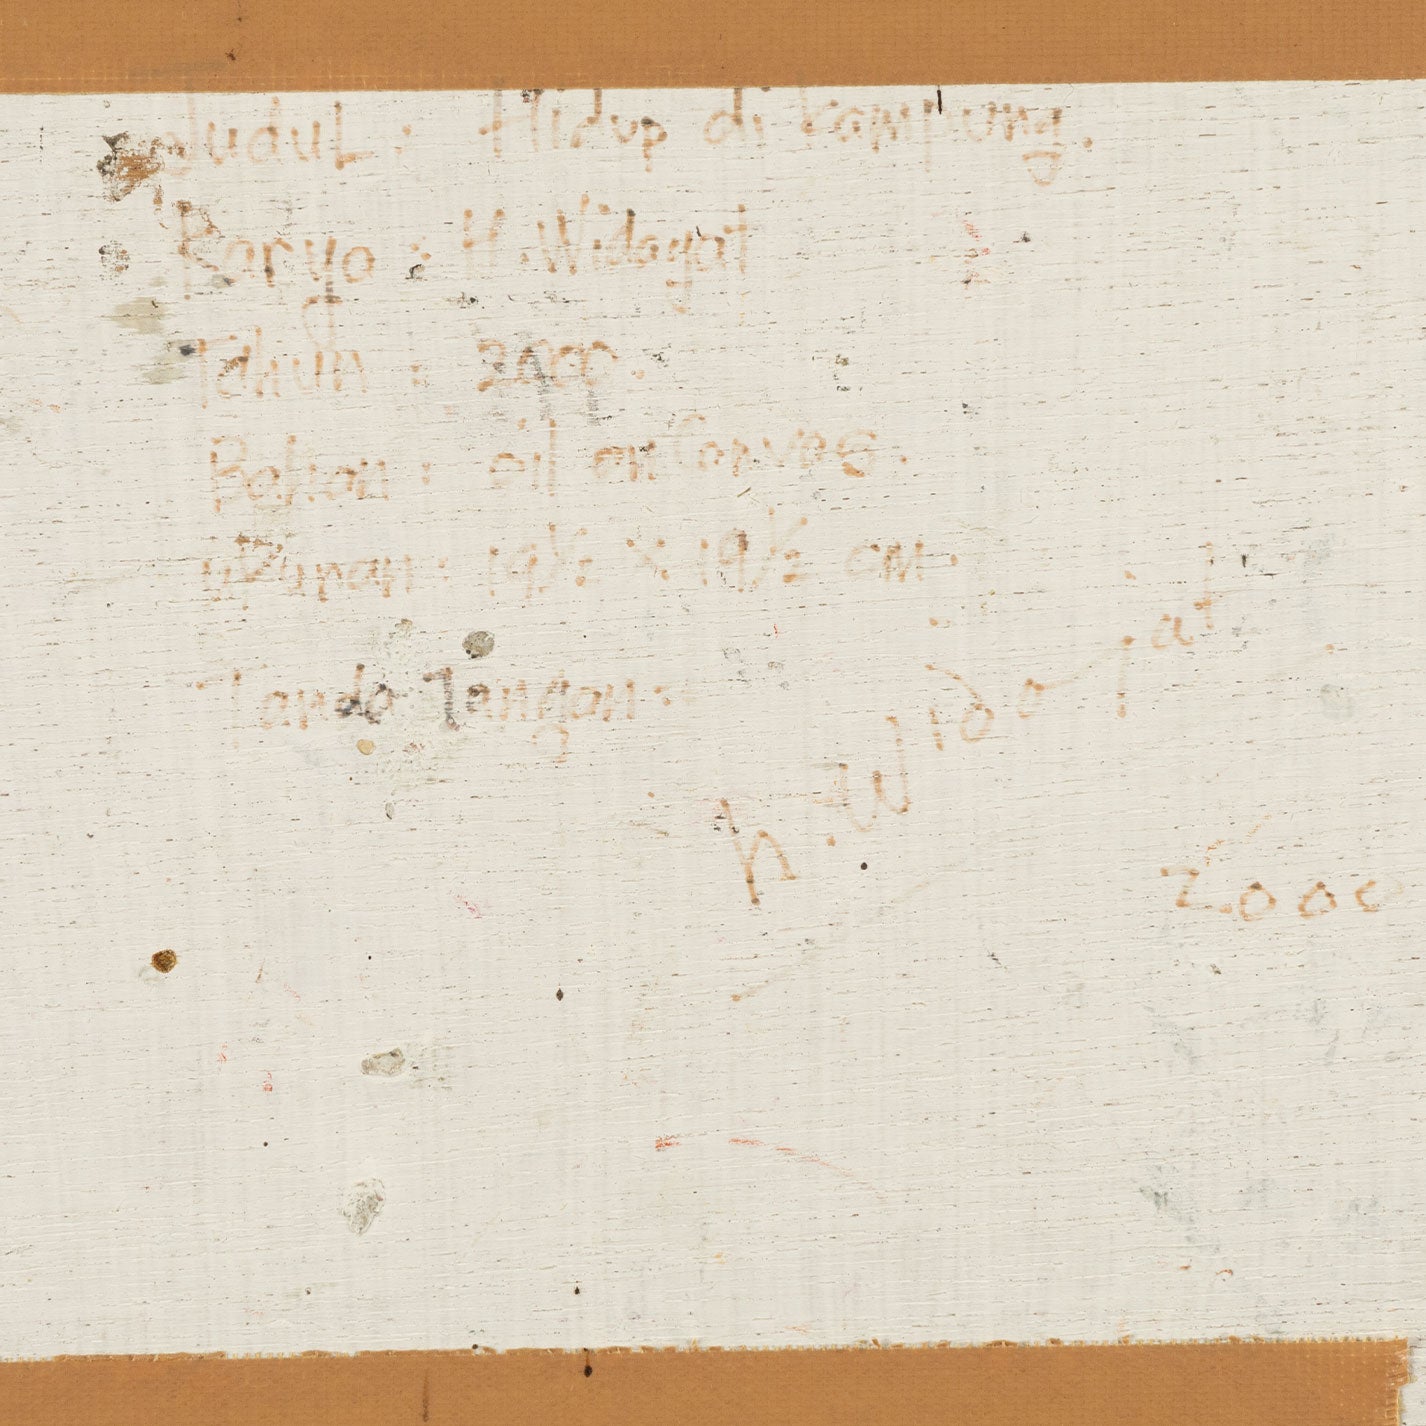 Judul : Hidup di kampung.
Karya : H. Widayat
Tahun : 2000.
Bahan : oil on Canvas.
Ukuran : 19½ x 19½ cm.
Tanda Tangan :
h. Widayat
2000